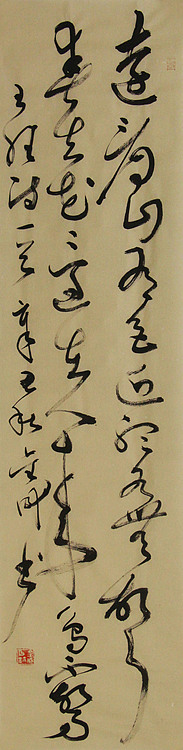 遠看山有色近聽水無聲
春去花還在人來鳥不驚
王維詩一首 辛丑秋 书